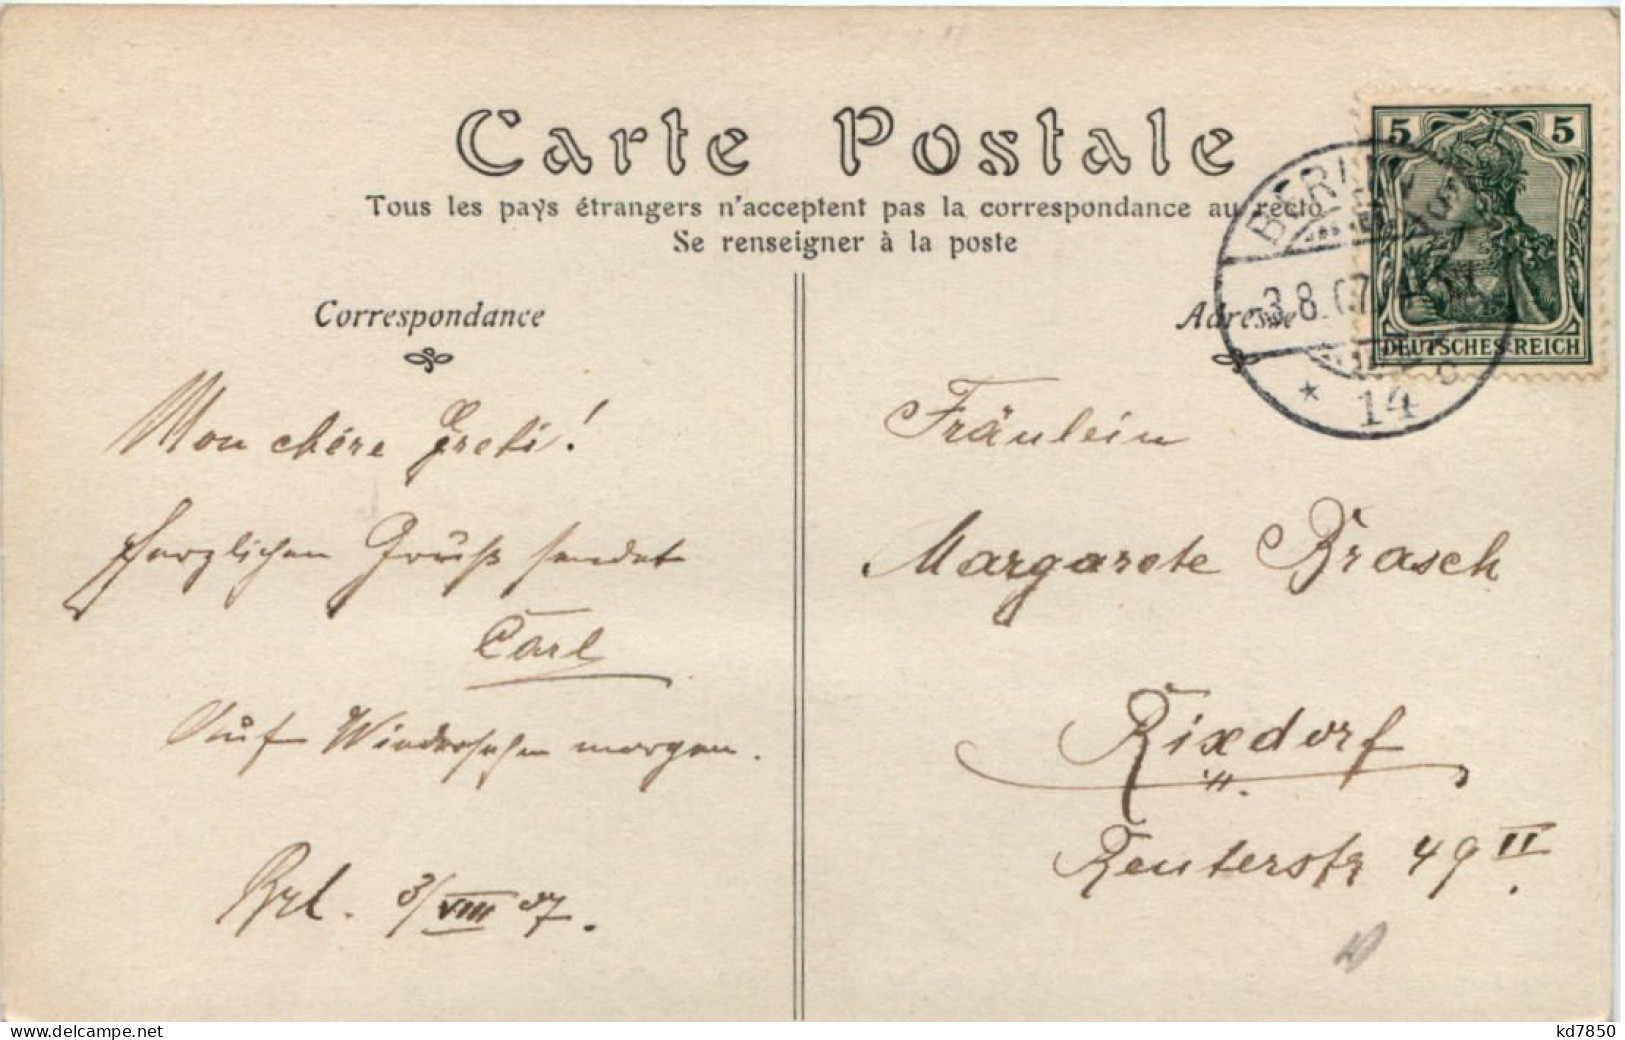 Carte Postale
Tous les pays étrangers n'acceptent pas la correspondance au recto
Se renseigner à la poste
Correspondance
Adresse
5 5
DEUTSCHES REICH
BERLIN
3.8.07
* 14
Mon chére Greti!
herzlichen Gruß sendet
Carl
Auf Wiedersehn morgen.
Brl. 3/VIII 07.
Fräulein
Margarete Brasch
Rixdorf
Reuterstr 49 II.
www.delcampe.net
kd7850